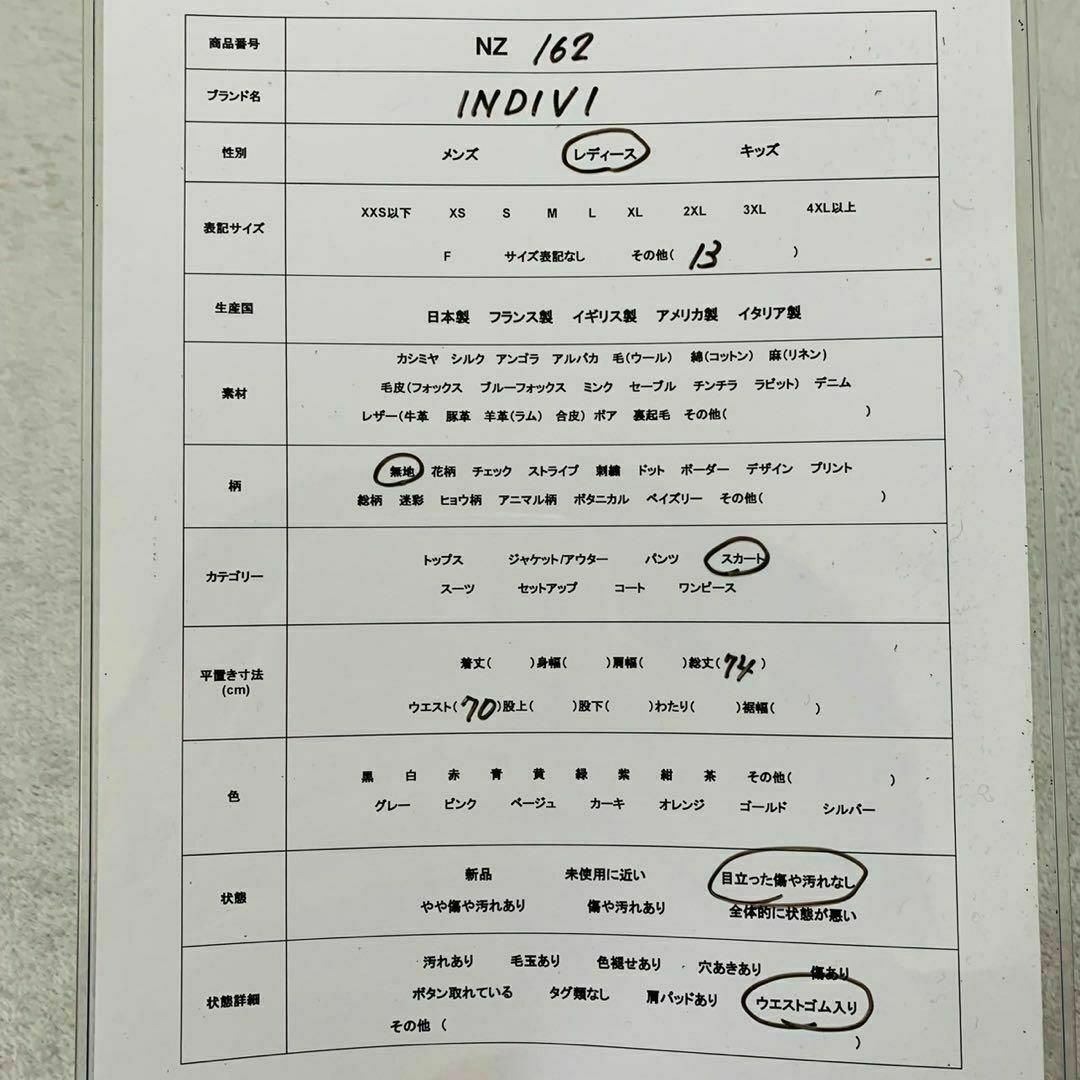 商品番号 NZ 162
ブランド名 INDIVI
性別 メンズ レディース キッズ
表記サイズ
XXS以下 XS S M L XL 2XL 3XL 4XL以上
F サイズ表記なし その他( 13 )
生産国 日本製 フランス製 イギリス製 アメリカ製 イタリア製
素材
カシミヤ シルク アンゴラ アルパカ 毛(ウール) 綿(コットン) 麻(リネン)
毛皮(フォックス ブルーフォックス ミンク セーブル チンチラ ラビット) デニム
レザー(牛革 豚革 羊革(ラム) 合皮) ボア 裏起毛 その他( )
柄
無地 花柄 チェック ストライプ 刺繍 ドット ボーダー デザイン プリント
総柄 迷彩 ヒョウ柄 アニマル柄 ボタニカル ペイズリー その他( )
カテゴリー
トップス ジャケット/アウター パンツ スカート
スーツ セットアップ コート ワンピース
平置き寸法
(cm)
着丈( )身幅( )肩幅( )総丈( 74 )
ウエスト( 70 )股上( )股下( )わたり( )裾幅( )
色
黒 白 赤 青 黄 緑 紫 紺 茶 その他( )
グレー ピンク ベージュ カーキ オレンジ ゴールド シルバー
状態
新品 未使用に近い 目立った傷や汚れなし
やや傷や汚れあり 傷や汚れあり 全体的に状態が悪い
状態詳細
汚れあり 毛玉あり 色褪せあり 穴あきあり 傷あり
ボタン取れている タグ類なし 肩パッドあり ウエストゴム入り
その他 ( )